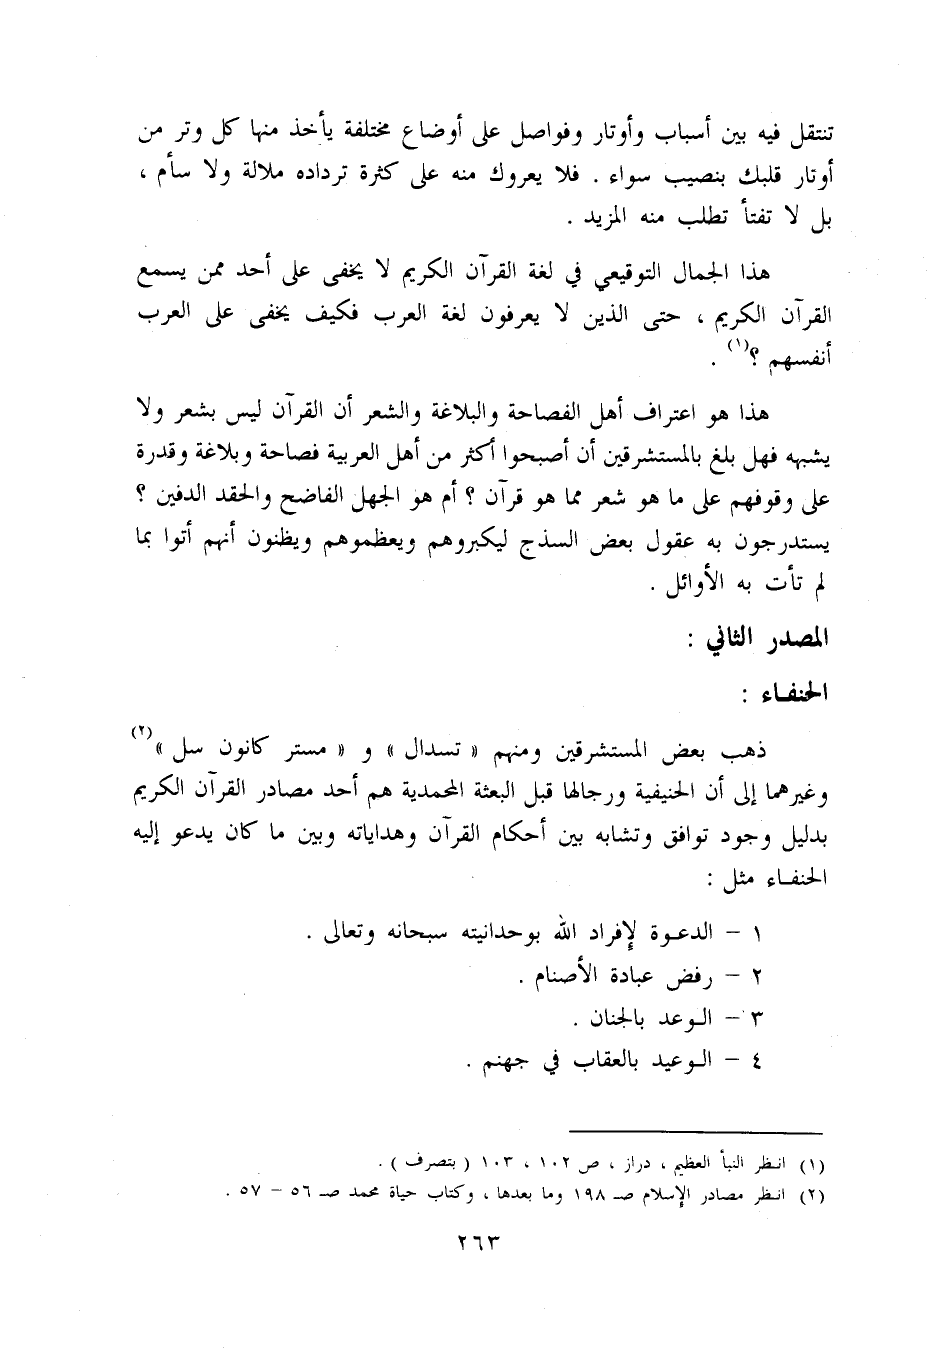 تنتقل فيه بين أسباب وأوتار وفواصل على أوضاع مختلفة يأخذ منها كل وتر من
أوتار قلبك بنصيب سواء . فلا يعروك منه على كثرة ترداده ملالة ولا سأم ،
بل لا تفتأ تطلب منه المزيد .
هذا الجمال التوقيعي في لغة القرآن الكريم لا يخفى على أحد ممن يسمع
القرآن الكريم ، حتى الذين لا يعرفون لغة العرب فكيف يخفى على العرب
أنفسهم ؟(١) .
هذا هو اعتراف أهل الفصاحة والبلاغة والشعر أن القرآن ليس بشعر ولا
يشبهه فهل بلغ بالمستشرقين أن أصبحوا أكثر من أهل العربية فصاحة وبلاغة وقدرة
على وقوفهم على ما هو شعر مما هو قرآن ؟ أم هو الجهل الفاضح والحقد الدفين ؟
يستدرجون به عقول بعض السذج ليكبروهم ويعظموهم ويظنون أنهم أتوا بما
لم تأت به الأوائل .
المصدر الثاني :
الحنفاء :
ذهب بعض المستشرقين ومنهم « تسدال » و « مستر كانون سل »(٢)
وغيرهما إلى أن الحنيفية ورجالها قبل البعثة المحمدية هم أحد مصادر القرآن الكريم
بدليل وجود توافق وتشابه بين أحكام القرآن وهداياته وبين ما كان يدعو إليه
الحنفاء مثل :
١ - الدعوة لإفراد الله بوحدانيته سبحانه وتعالى .
٢ - رفض عبادة الأصنام .
٣ - الوعد بالجنان .
٤ - الوعيد بالعقاب في جهنم .
(١) انظر النبأ العظيم ، دراز ، ص ١٠٢ ، ١٠٣ ( بتصرف ) .
(٢) انظر مصادر الإسلام صـ ١٩٨ وما بعدها ، وكتاب حياة محمد صـ ٥٦ - ٥٧ .
٢٦٣